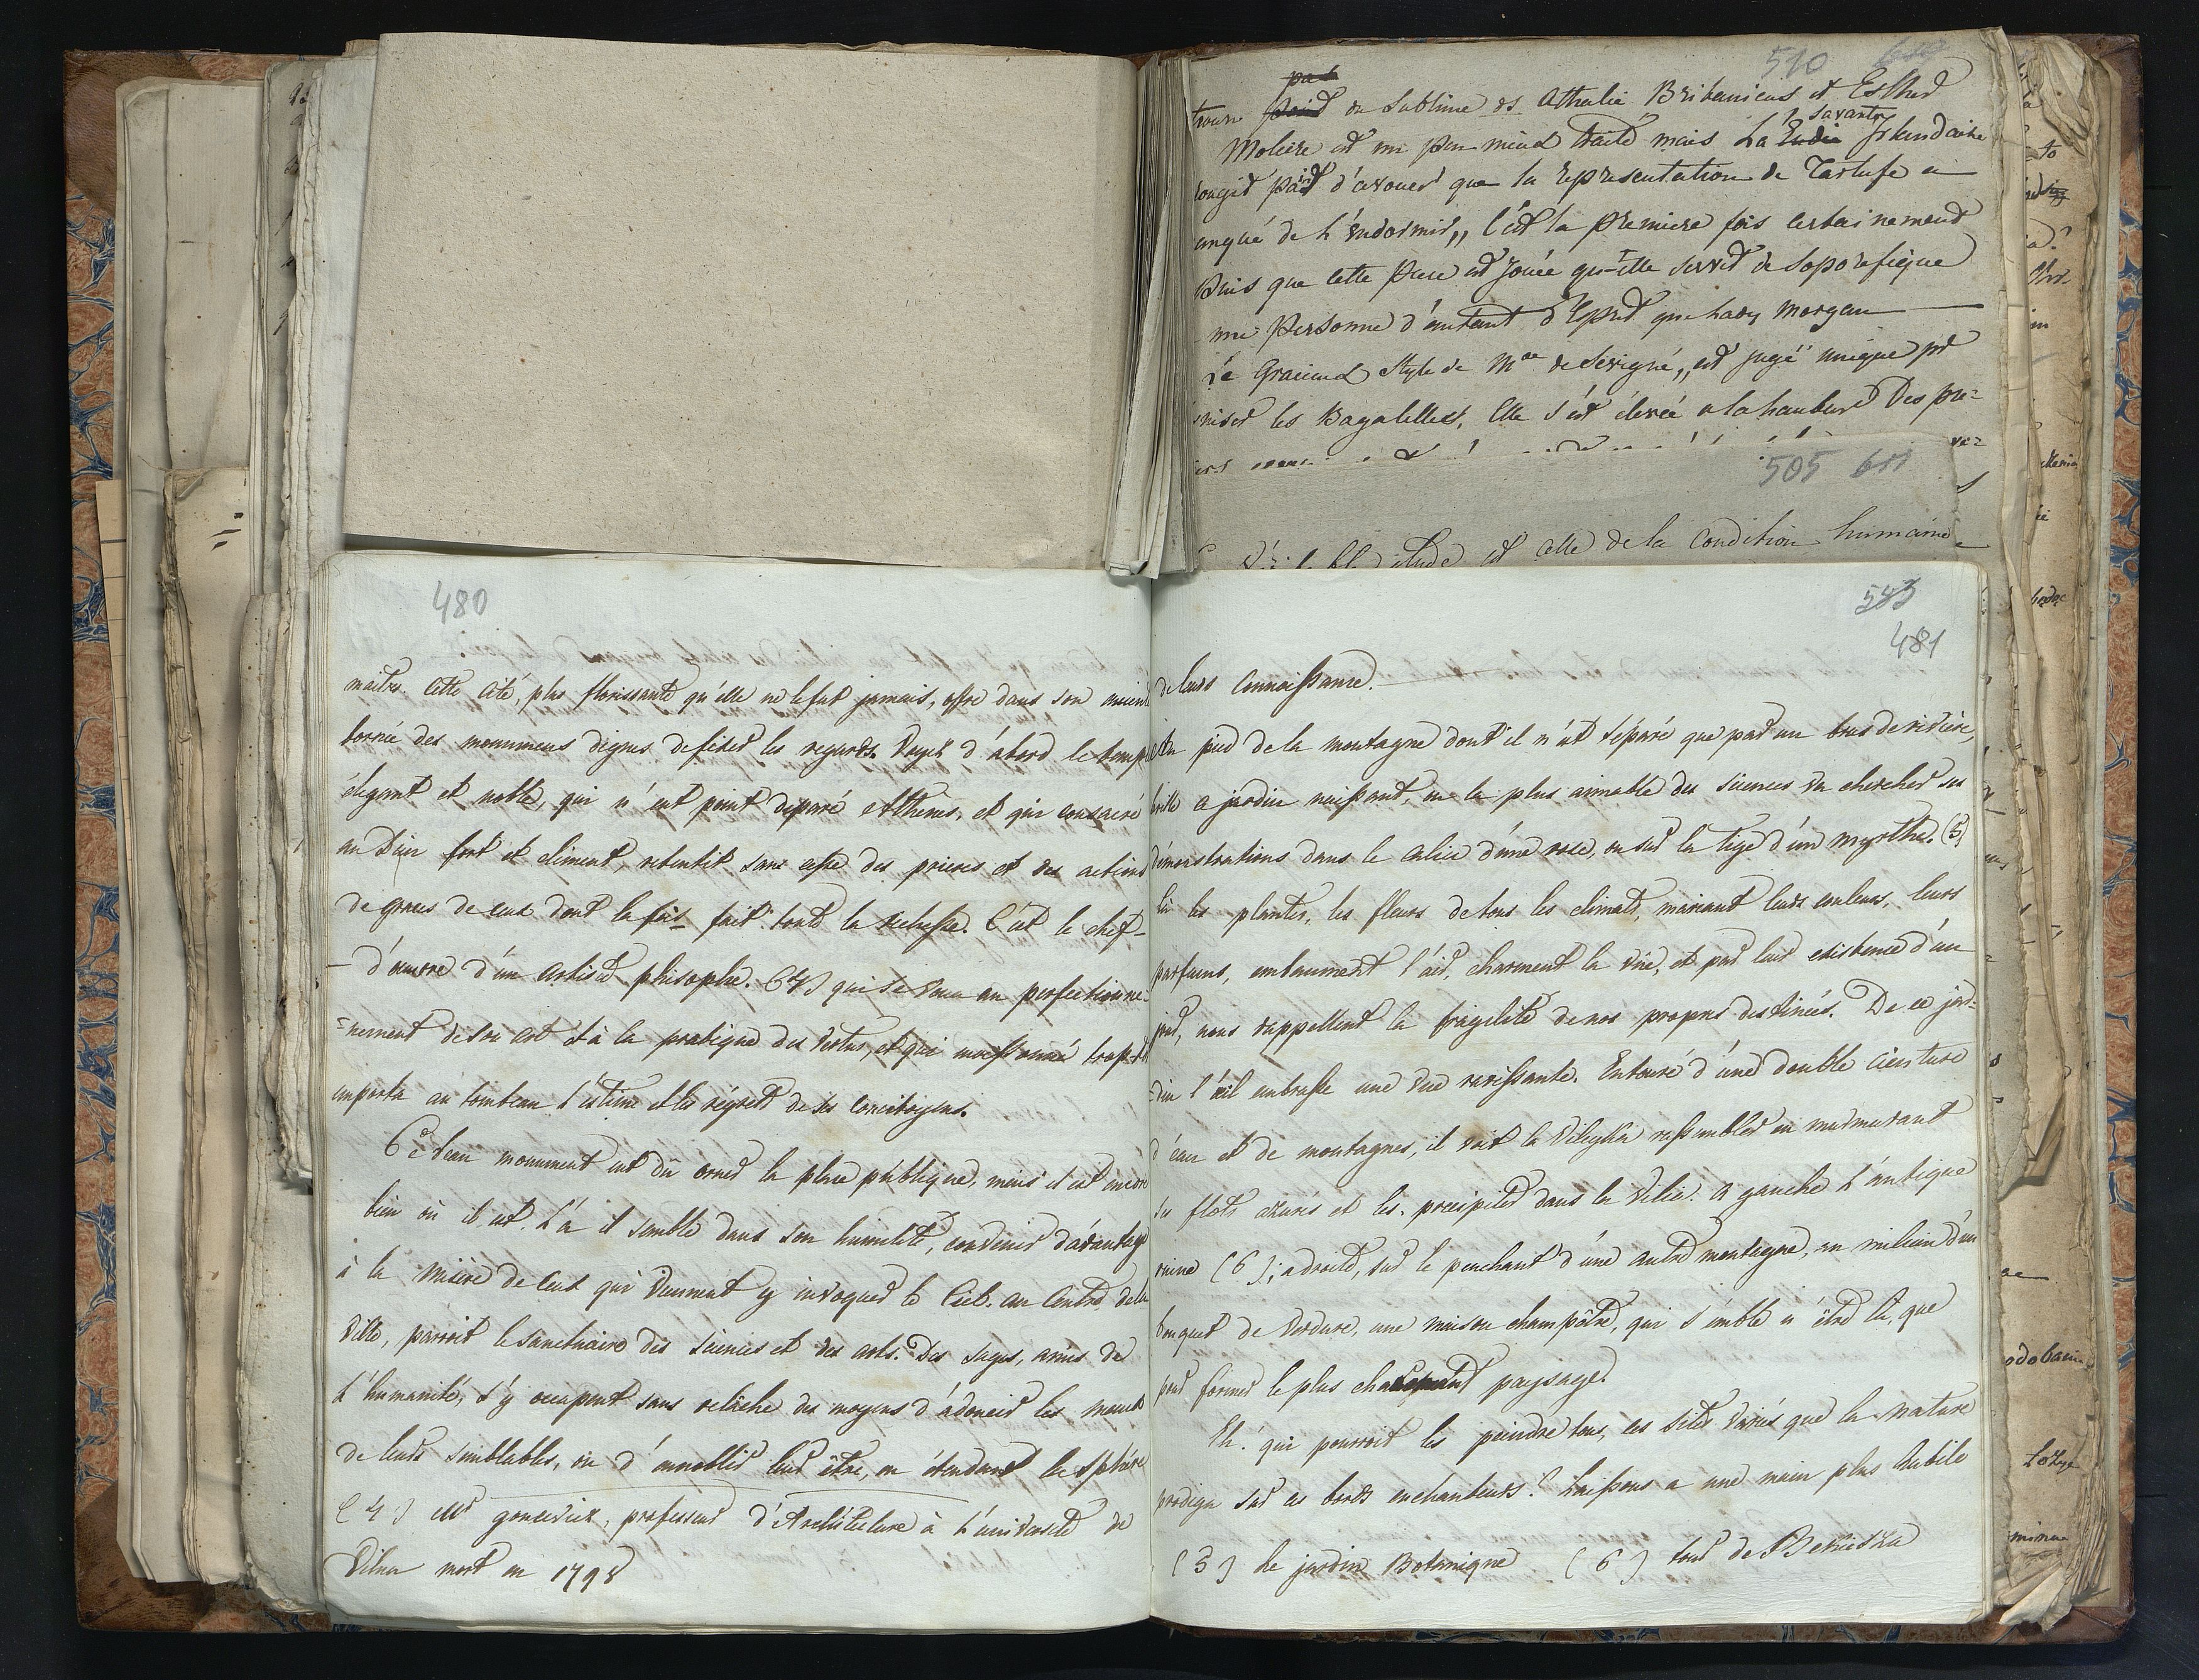 510
pas
trouve point du sublime ds Athalie Britanicus et Esther
Moliere est un peu mieux traité mais La savante Irlandaise
rougit point d'avouer que la representation de Tartufe a
anqué de L'endormir,, C'est la premiere fois certainement
puis que cette piece est jouée qu'elle servit de soporefique
une personne d'autant d'Esprit que Lady Morgan
Le Gracieux style de Mde de Sévigné,, est jugé unique pr
les Bagatelles, Elle s'est élevée a la hauteur Des pre-
505 611
est celle de la Condition humaine
480
maitres. Cette cité, plus florissante qu'elle ne le fut jamais, offre dans son enceinte
bornée des monumens dignes de fixer les regards. Voyez d'abord le temple
élégant et noble, qui n'eut point deparé Athenes, et qui consacré
au Dieu fort et clément, retentit sans cesse des prieres et des actions
de graces de ceux dont la fois fait toute la richesse. C'est le chef-
- d'oeuvre d'un artiste philosophe. (4) qui se voua au perfectionne-
=nement de son art et à la pratique des vertus, et qui moissonné trop tôt
emporta au tombeau l'estime et les régrets de ses concitoyens.
Ce beau monument eut dû orner la place publique, mais il est encore
bien où il est. Là il semble dans son humilité, convenir d'avantage
à la misère de ceux qui viennent y invoquer le Ciel. au Centre de la
Ville, paroit le sanctuaire des sciences et des arts. Des sages, amis de
L'humanité, s'y occupent sans relâche des moyens d'adoucir les maux
de leurs semblables, ou d'annoblir leur être, en étendant la sphére
(4) Mr goucevicz, professeur d'Architecture à L'université de
Vilna mort en 1798
543
481
de leurs connaissance.
Au pied de la montagne dont il n'est séparé que par un bras de riviere,
brille ce jardin naissant, ou la plus aimable des sciences va chercher ses
démonstrations dans le calice d'une rose, ou sur la tige d'un myrthe. (5)
là les plantes, les fleurs de tous les climats, mariant leurs couleurs, leurs
parfums, embaument l'air, charment la vüe, et par leur existence d'un
jour, nous rappellent la fragilité de nos propres destinées. De ce jar-
=din l'œil embrasse une vue ravissante. Entouré d'une double ceinture
d'eau et de montagnes, il voit la Vileyka rassembler en murmurant
ses flots azurés et les precipiter dans la Vilie. a gauche L'antique
ruine (6); a droite, sur le penchant d'une autre montagne, au milieu d'un
bouquet de verdure, une maison champêtre, qui semble n'être là, que
pour former le plus charmant paysage.
Eh. qui pourroit les peindre tous, ces sites variés que la nature
prodigue sur ces bords enchanteurs? Laissons a une main plus habile
(5) le jardin Botanique (6) tour de Bekieszka